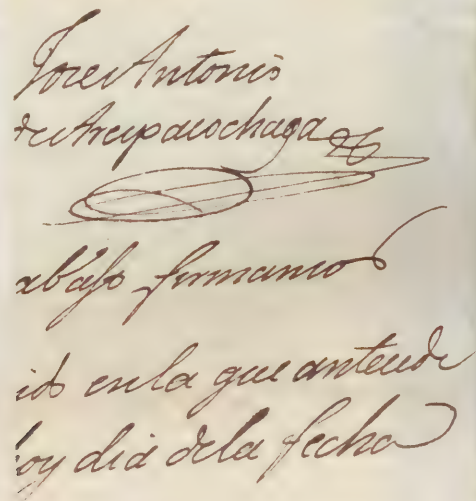 Jose Antonio
de Areipacochaga
abajo firmamos
ido en la que antecede
hoy dia dela fecha